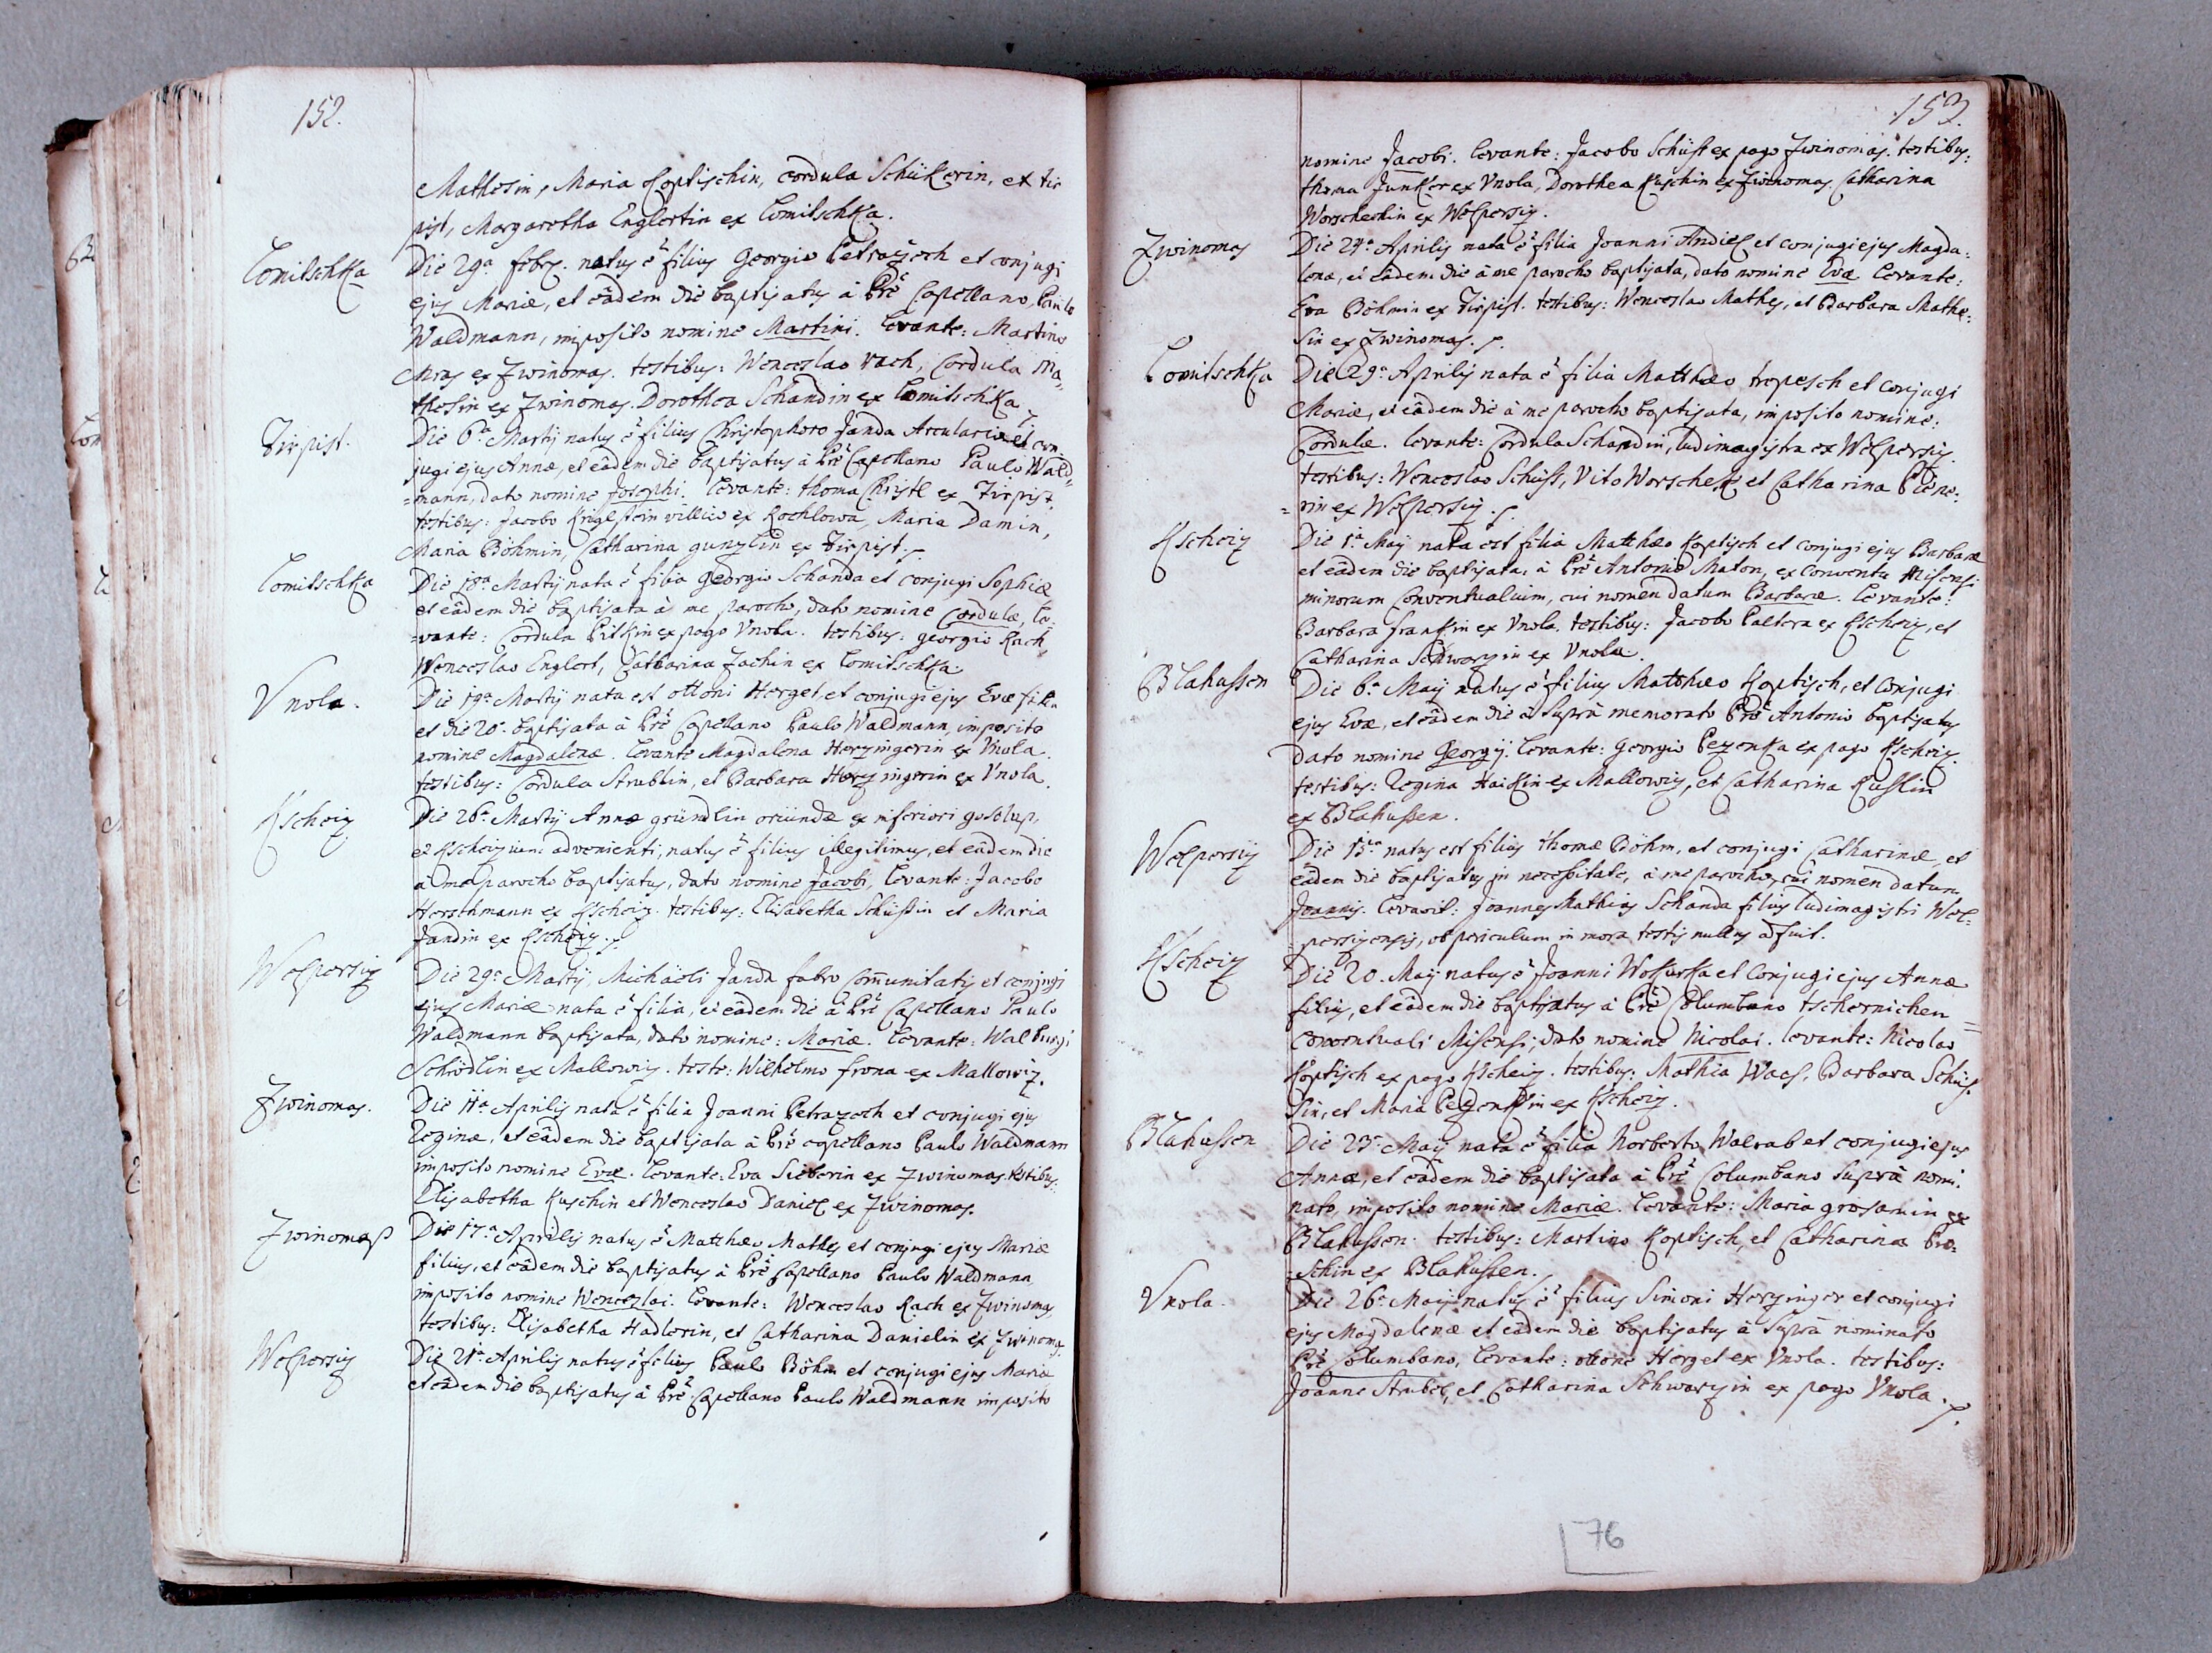 152.
Mathesin, Maria Koptischin, Cordula Schükerin, ex tir
pist, Margaretha Englertin ex Lomitschka.
Lomitschka
Die 29a febr. natus ê filius Georgio Petrazech et conjugi
ejus Mariæ, et eâdem die baptisatus à Prê Capellano, Paulo
Waldmann, imposito nomine Martini. levante: Martino
Mras ex Zwinomas. testibus: Wenceslao rach, Cordula Ma-
thesin ex Zwinomas. Dorothea Schandin ex Lomitschka.
Tirpist.
Die 6a Martij natus ê filius Christophoro Janda Arculario et con-
jugi ejus Annæ, et eâdem die baptisatus à Prê Capellano Paulo Wald-
=mann, dato nomine Josephi. levante: thoma Christl ex Tirpist.
testibus: Jacobo Kriglstein villico ex Kochlowa, Maria Damin,
Maria Böhmin, Catharina gunzlin ex Tirpist.
Lomitschka
Die 18a Martij nata ê filia georgio Schanda et conjugi Sophiæ
et eâdem die baptisata à me parocho, dato nomine Cordulæ, le-
=vante: Cordula Pilkin ex pago Vnola. testibus: georgio Rach,
Wenceslao Englert, Catharina Zachin ex Lomitschka.
Vnola.
Die 19a Martij nata est ottoni Herget et conjugi ejus Evæ filia
et die 20a baptisata à Prê Capellano Paulo Waldmann, imposito
nomine Magdalenæ. levante Magdalena Herzingerin ex Vnola.
testibus: Cordula Strublin, et Barbara Herzingerin ex Vnola.
Kscheiz
Die 26a Martij Annæ gründlin oriundæ ex inferiori godlup,
et Kscheizium advenienti, natus ê filius illegitimus, et eâdem die
à me parocho baptisatus, dato nomine Jacobi, levante: Jacobo
Horsthmann ex Kscheiz. testibus: Elisabetha Schüssin et Maria
Jandin ex Kscheiz.
Wolpersiz
Die 29a Martij Michaëli Janda fabro Com̄unitatis et conjugi
ejus Mariæ nata ê filia, et eâdem die à Prê Capellano Paulo
Waldmann baptisata, dato nomine: Mariæ. levante: Walburgi
Schrödlin ex Mallowiz. teste: Wilhelmo frona ex Mallowiz.
Zwinomas.
Die 11a Aprilis nata ê filia Joanni Petrazech et conjugi ejus
Reginæ, et eâdem die baptisata à Prê capellano Paulo Waldmann
imposito nomine Evæ. levante: Eva Sieberin ex Zwinomas. testibus:
Elisabetha Kuschin et Wenceslao Daniel ex Zwinomas.
Zwinomaß
Die 17a Aprilis natus ê Matthæo Mathes et conjugi ejus Mariæ
filius, et eâdem die baptisatus à Prê Capellano Paulo Waldmann
imposito nomine Wenceslai. levante: Wenceslao Rach ex Zwinomas,
testibus: Elisabetha Hadlerin, et Catharina Danielin ex Zwinomas.
Wolpersiz
Die 21a Aprilis natus ê filius Paulo Böhm et conjugi ejus Mariæ
et eâdem die baptisatus à Prê Capellano Paulo Waldmann imposito
153.
nomine Jacobi. levante: Jacobo Schüst ex pago Zwinomas. testibus:
thoma Junker ex Vnola, Dorothea Kuschin ex Zwinomas, Catharina
Worscheckin ex Wolpersiz.
Zwinomas
Die 24a Aprilis nata ê filia Joanni Andiel et conjugi ejus Magda-
lenæ, et eâdem die à me parocho baptisata, dato nomine Evæ levante:
Eva Böhmin ex Tirpist. testibus: Wenceslao Mathes, et Barbara Mathe-
sin ex Zwinomas.
Lomitschka
Die 29a Aprilis nata ê filia Matthæo tropesch et conjugi
Mariæ, et eâdem die à me parocho baptisata, imposito nomine:
Cordulæ. levante: Cordula Schandin, ludimagistra ex Wolpersiz.
testibus: Wenceslao Schüss, Vito Worschek et Catharina Piene-
=rin ex Wolpersiz.
Kscheiz
Die 1a Maij nata est filia Matthæo Koptisch et conjugi ejus Barbaræ
et eâdem die baptisata, à Prê Antonio Maton, ex Conventu Misensi
minorum Conventualium, cui nomen datum Barbaræ. levante:
Barbara frankin ex Vnola. testibus: Jacobo Paltera ex Kscheiz, et
Catharina Schwarzin ex Vnola.
Blahussen
Die 6a Maij natus ê filius Matthæo Koptisch, et conjugi
ejus Evæ, et eâdem die à suprà memorato Prê Antonio baptisatus
dato nomine Georgij. levante: Georgio Pezenka ex pago Kscheiz.
testibus: Regina Haikin ex Mallowiz, et Catharina Kusslin
ex Blahussen.
Wolpersiz
Die 13a natus est filius thomæ Böhm, et conjugi Catharinæ, et
eâdem die baptisatus in necessitate, à me parocho, cui nomen datum
Joannis. levavit: Joannes Mathias Schanda filius ludimagistri Wol-
=persizensis, ob periculum in mora testis nullus adfuit.
Kscheiz
Die 20. Maij natus ê Joanni Wokurka et conjugi ejus Annæ
filius, et eâdem die baptisatus à Prê Columbano tschernichen
conventuali Misensi, dato nomine Nicolai. levante: Nicolao
Koptisch ex pago Kscheiz. testibus: Mathia Waas, Barbara Schüs-
sin, et Maria Pezenkin ex Kscheiz.
Blahussen
Die 23a Maij nata ê filia Norberto Walrab et conjugi ejus
Annæ, et eâdem die baptisata à Prê Columbano suprà nomi-
nato, imposito nomine Mariæ. levante: Maria grosamin ex
Blahussen. testibus: Martino Koptisch, et Catharina Pre-
=schin ex Blahussen.
Vnola.
Die 26a Maij natus ê filius Simoni Herzinger et conjugi
ejus Magdalenæ et eâdem die baptisatus à suprà nominato
Prê Columbano, levante: ottone Herget ex Vnola. testibus:
Joanne Strubel, et Catharina Schwarzin ex pago Vnola.
76